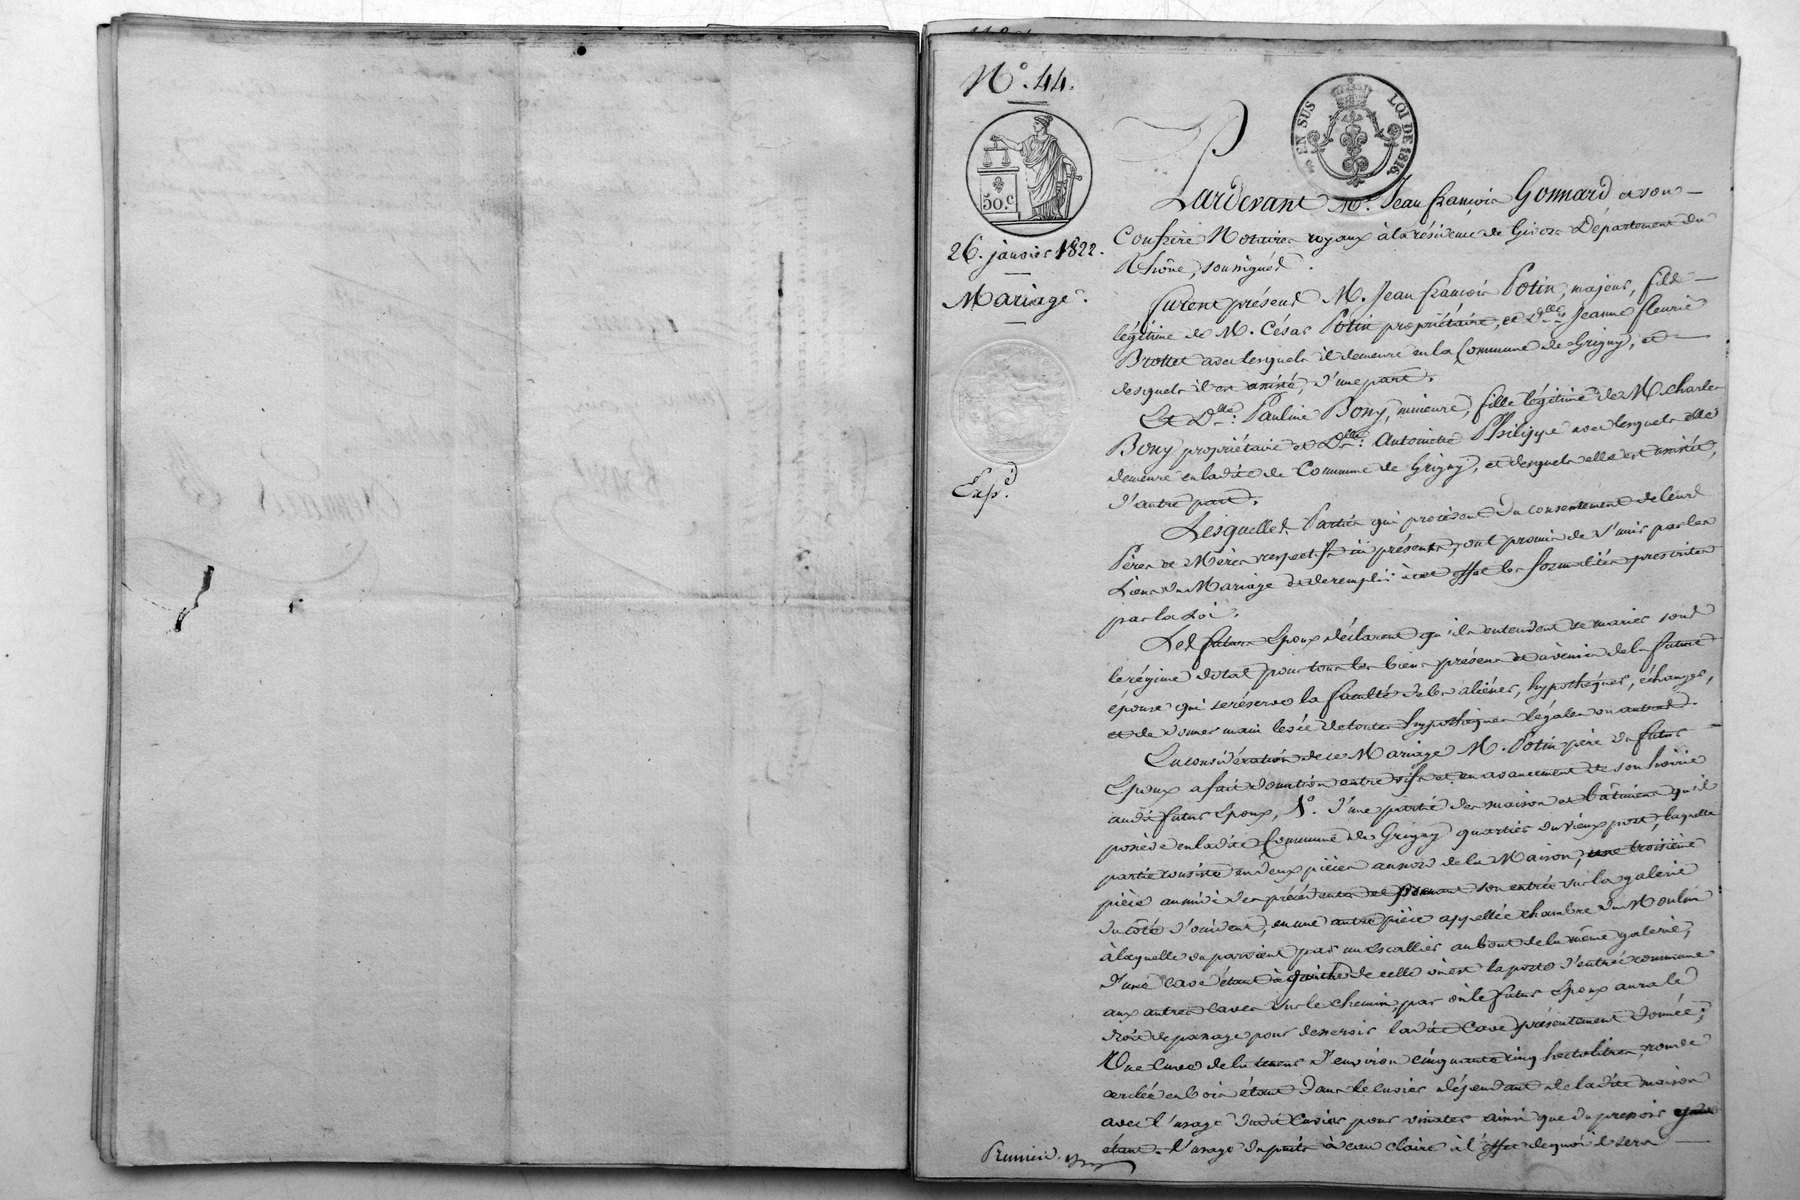 N.° 44.
3 EN SUS LOI DE 1816.
50.c
26. janvier 1822.
Mariage.
Exp.é
Pardevant M.e Jean françois Gonnard et son
Confrère Notaires royaux à la résidence de Givors Département du
Rhône, soussignés.
furent présens M. Jean françois Potin, majeur, fils
légitime de M. César Potin propriétaire, et D.lle Jeanne fleurie
Brottet avec lesquels il demeure en la Commune de Grigny, et
desquels il est assisté, d'une part.
Et D.lle Pauline Bony, mineure, fille légitime de M. Charles
Bony propriétaire et D.lle Antoinette Philippe avec lesquels elle
demeure en ladite de Commune de Grigny, et desquels elle est assistée,
d'autre part.
Lesquelles Parties qui procèdent du consentement de leurs
Pères et Mères respectifs ici présents, ont promis de s'unir par les
Liens du Mariage et de remplir à cet effet les formalités prescrites
par la Loi.
Les futurs Epoux déclarent qu'ils entendent se marier sous
le régime dotal pour tous les biens présens et à venir de la future
épouse qui se réserve la faculté de les aliéner, hypothéquer, échanger,
et de donner main levée de toutes hypothèques légales ou autres.
En considération de ce Mariage M. Potin père du futur
Epoux a fait donation entre vifs et en avancement de son hoirie
audit futur Epoux, 1.° d'une partie des maison et bâtimens qu'il
possède en ladite Commune de Grigny quartier du vieux port, laquelle
partie consiste en deux pièces au nord de la Maison, une troisième
pièce au midi des précédentes et prenant son entrée sur la galerie
du côté d'occident, en une autre pièce appellée chambre du Moulin
à laquelle on parvient par un escallier au bout de la même galerie,
d'une cave étant à gauche de celle où est la porte d'entrée commune
aux autres caves sur le chemin, par où le futur Epoux aura le
droit de passage pour desservir ladite cave présentement donnée;
Une cuve de la teneur d'environ cinquante cinq hectolitres, ronde
cerclée en bois étant dans le cuvier dépendant de ladite maison
avec l'usage dudit cuvier pour vinater ainsi que du pressoir y
étant. l'usage du puits à eau claire à l'effet de quoi il sera
Premier.